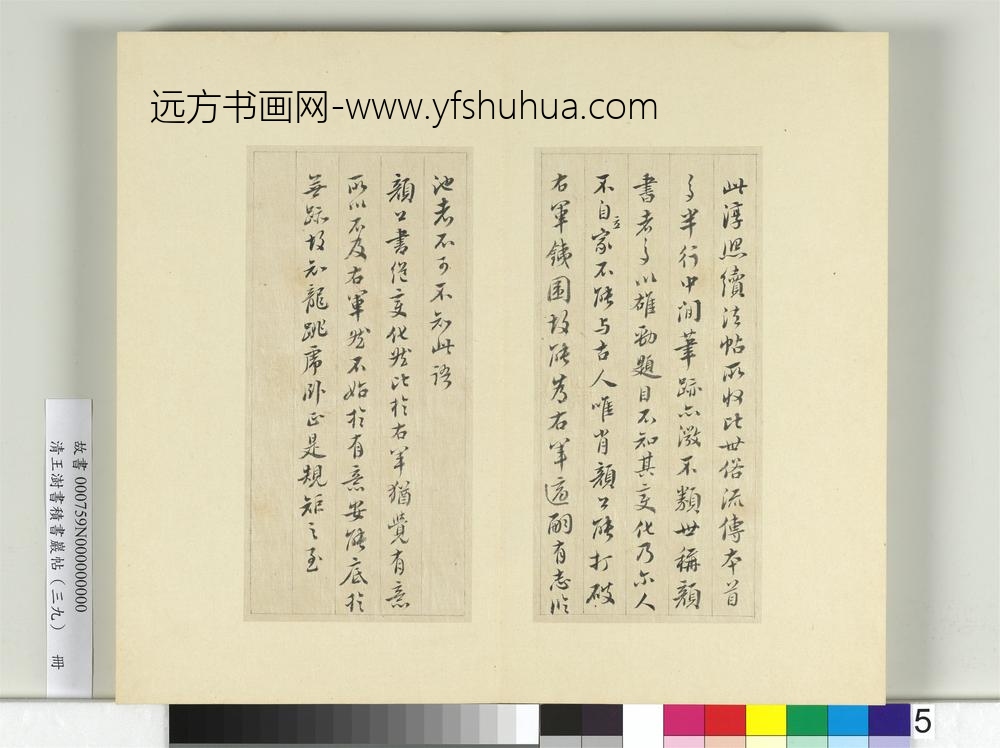 远方书画网-www.yfshuhua.com
此淳熙續法帖所收比世俗流傳本首
多半行中間筆跡亦微不類世稱顏
書者多以雄勁題目不知其变化乃尔人
不自立家不能与古人唯肖顏公能打破
右軍鐵围故能為右軍適嗣有志临
池者不可不知此語
顏公書絕变化然比於右軍猶覺有意
所以不及右軍然不始於有意安能底於
無跡故知龍跳虎卧正是規矩之至
故書 000759N000000000
清王澍書積書巖帖（三九） 冊
5